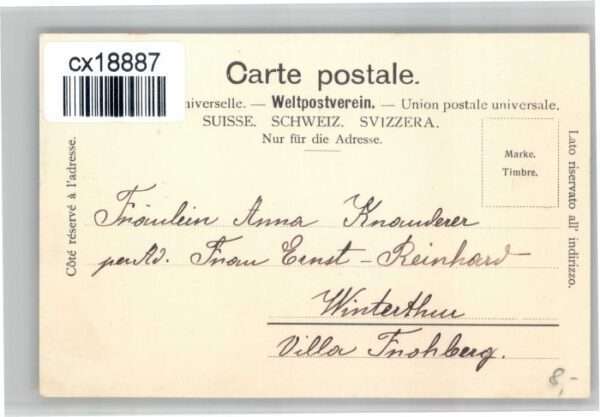 cx18887
Carte postale.
iverselle. — Weltpostverein. — Union postale universale.
SUISSE. SCHWEIZ. SVIZZERA.
Nur für die Adresse.
Marke.
Timbre.
Côté réservé à l'adresse.
Lato riservato all' indirizzo.
Fräulein Anna Knauderer
per Ad. Frau Ernst-Reinhard
Winterthur
Villa Frohberg.
8,-